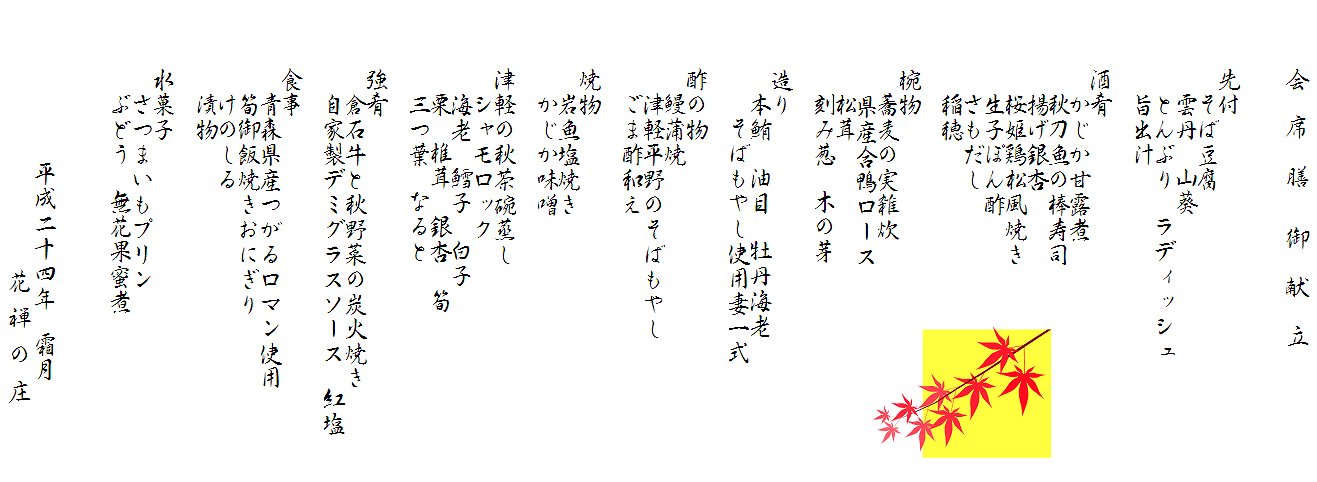 会席膳御献立
先付
そば豆腐
雲丹 山葵
とんぶり ラディッシュ
旨出汁
酒肴
かじか甘露煮
秋刀魚の棒寿司
揚げ銀杏
桜姫鶏松風焼き
生子ぽん酢
さもだし
稲穂
椀物
蕎麦の実雑炊
県産合鴨ロース
松茸
刻み葱 木の芽
造り
本鮪 油目 牡丹海老
そばもやし使用妻一式
酢の物
鰻蒲焼
津軽平野のそばもやし
ごま酢和え
焼物
岩魚塩焼き
かじか味噌
津軽の秋茶碗蒸し
シャモロック
海老 鱈子 白子
栗 椎茸 銀杏 筍
三つ葉 なると
強肴
倉石牛と秋野菜の炭火焼き
自家製デミグラスソース 紅塩
食事
青森県産つがるロマン使用
筍御飯焼きおにぎり
けのしる
漬物
水菓子
さつまいもプリン
ぶどう 無花果蜜煮
平成二十四年 霜月
花禅の庄